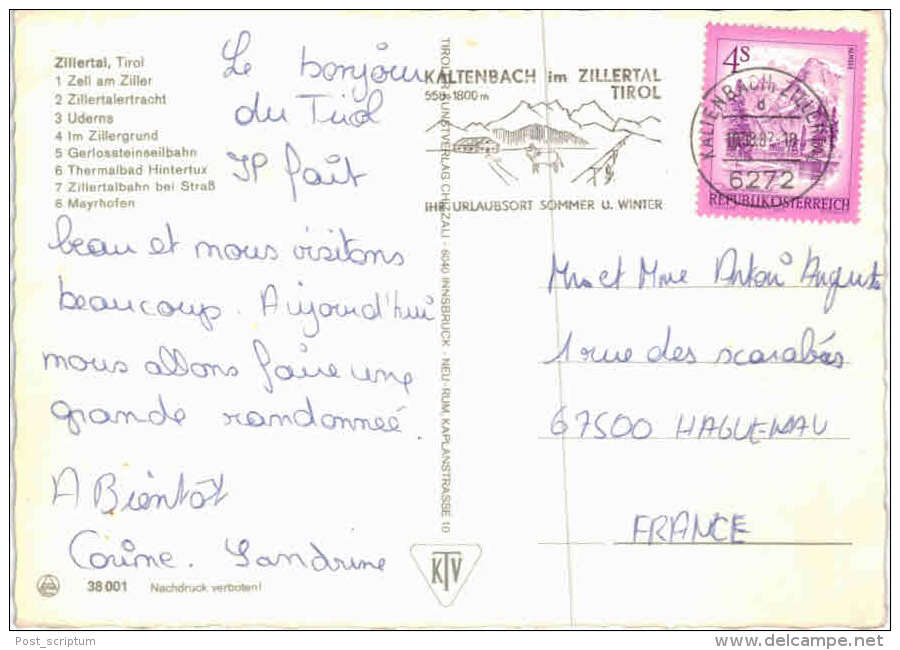 Zillertal, Tirol
1 Zell am Ziller
2 Zillertalertracht
3 Uderns
4 Im Zillergrund
5 Gerlossteinseilbahn
6 Thermalbad Hintertux
7 Zillertalbahn bei Straß
8 Mayrhofen
Le bonjour
du Tirol
IP fait
beau et nous visitons
beaucoup. Aujourd'hui
nous allons faire une
grande randonneé.
A Bientôt
Corinne. Sandrine
38 001 Nachdruck verboten!
TIROLER KUNSTVERLAG CHIZZALI - 6040 INNSBRUCK - NEU-RUM, KAPLANSTRASSE 10
KTV
KALTENBACH im ZILLERTAL
558-1800m TIROL
IHR URLAUBSORT SOMMER U. WINTER
4S
KALTENBACH, ZILLERTAL
d
6272
REPUBLIK ÖSTERREICH
Mr et Mme Antoni Auguste
1 rue des scarabés
67500 HAGUENAU
FRANCE
Post_scriptum
www.delcampe.net